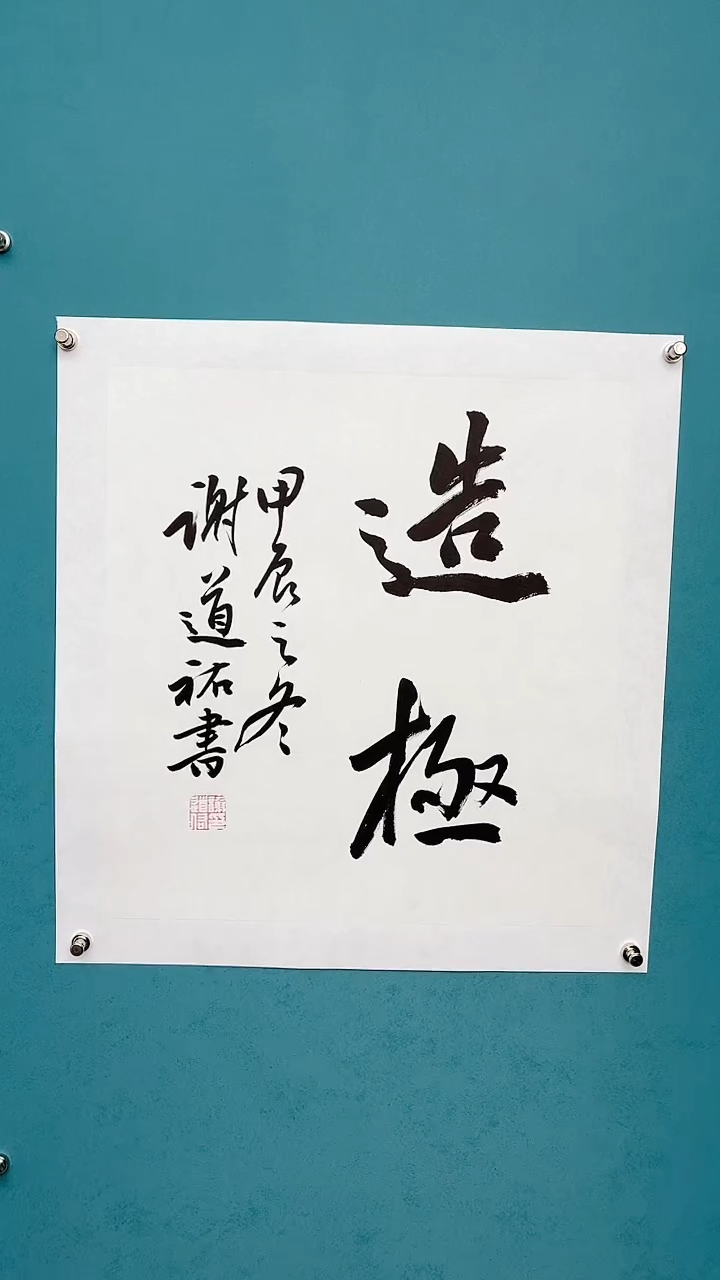 造極
甲辰之冬
謝道祐書